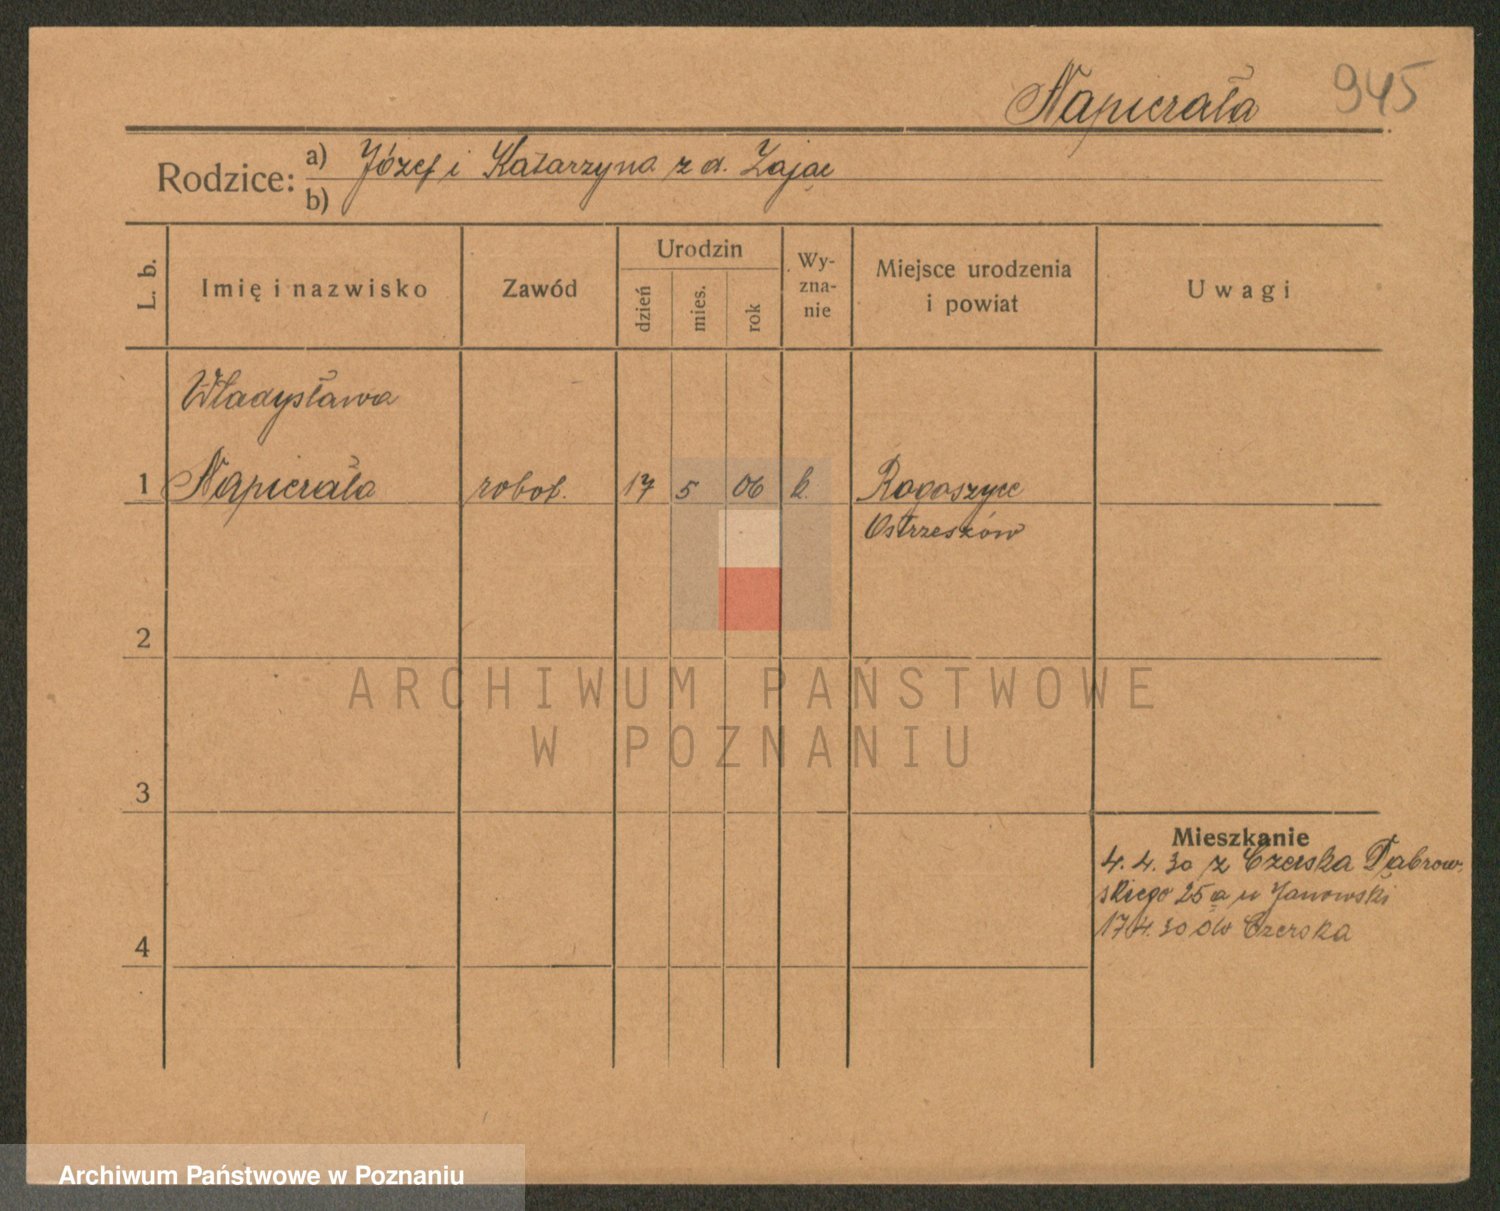 Napierała 945
Rodzice: a) Józef i Katarzyna z d. Zając
b)
L. b. Imię i nazwisko Zawód Urodzin dzień mies. rok Wy-zna-nie Miejsce urodzenia i powiat Uwagi
Władysława
1 Napierała robot. 17 5 06 k. Rogaszyce
Ostrzeszów
2
ARCHIWUM PAŃSTWOWE
W POZNANIU
3
Mieszkanie
4. 4. 30 z Czerska Dąbrow-
skiego 25a u Janowski
17.4.30 do Czerska
4
Archiwum Państwowe w Poznaniu